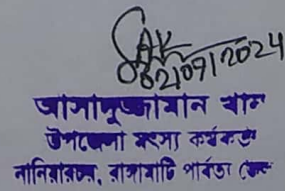 08/07/2024
আসাদুজ্জামান খান
উপজেলা মৎস্য কর্মকর্তা
নানিয়ারচর, রাঙ্গামাটি পার্বত্য জেলা